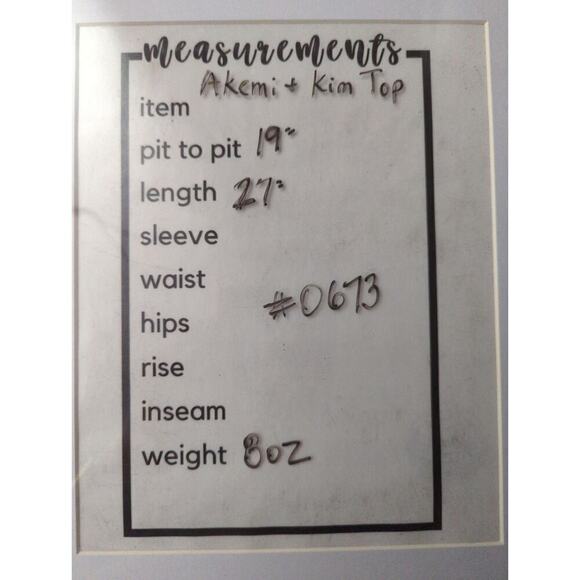 measurements
Akemi + Kim Top
item
pit to pit 19"
length 27"
sleeve
waist
#0673
hips
rise
inseam
weight 8oz